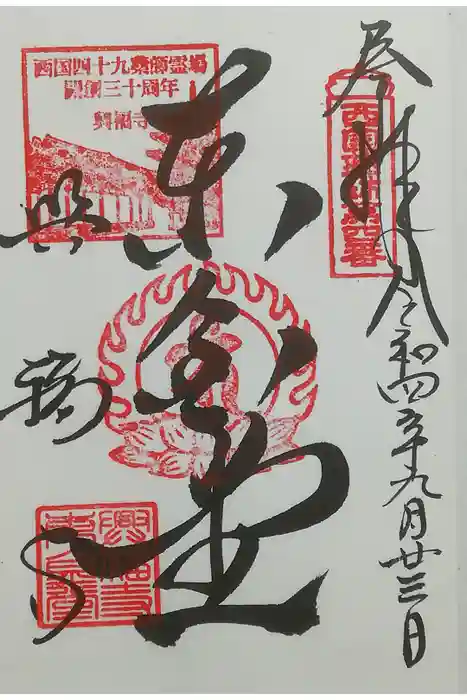 奉拝
令和四年九月廿三日
西国薬師第四番
東金堂
西国四十九薬師霊場
開創三十周年
興福寺
興福寺